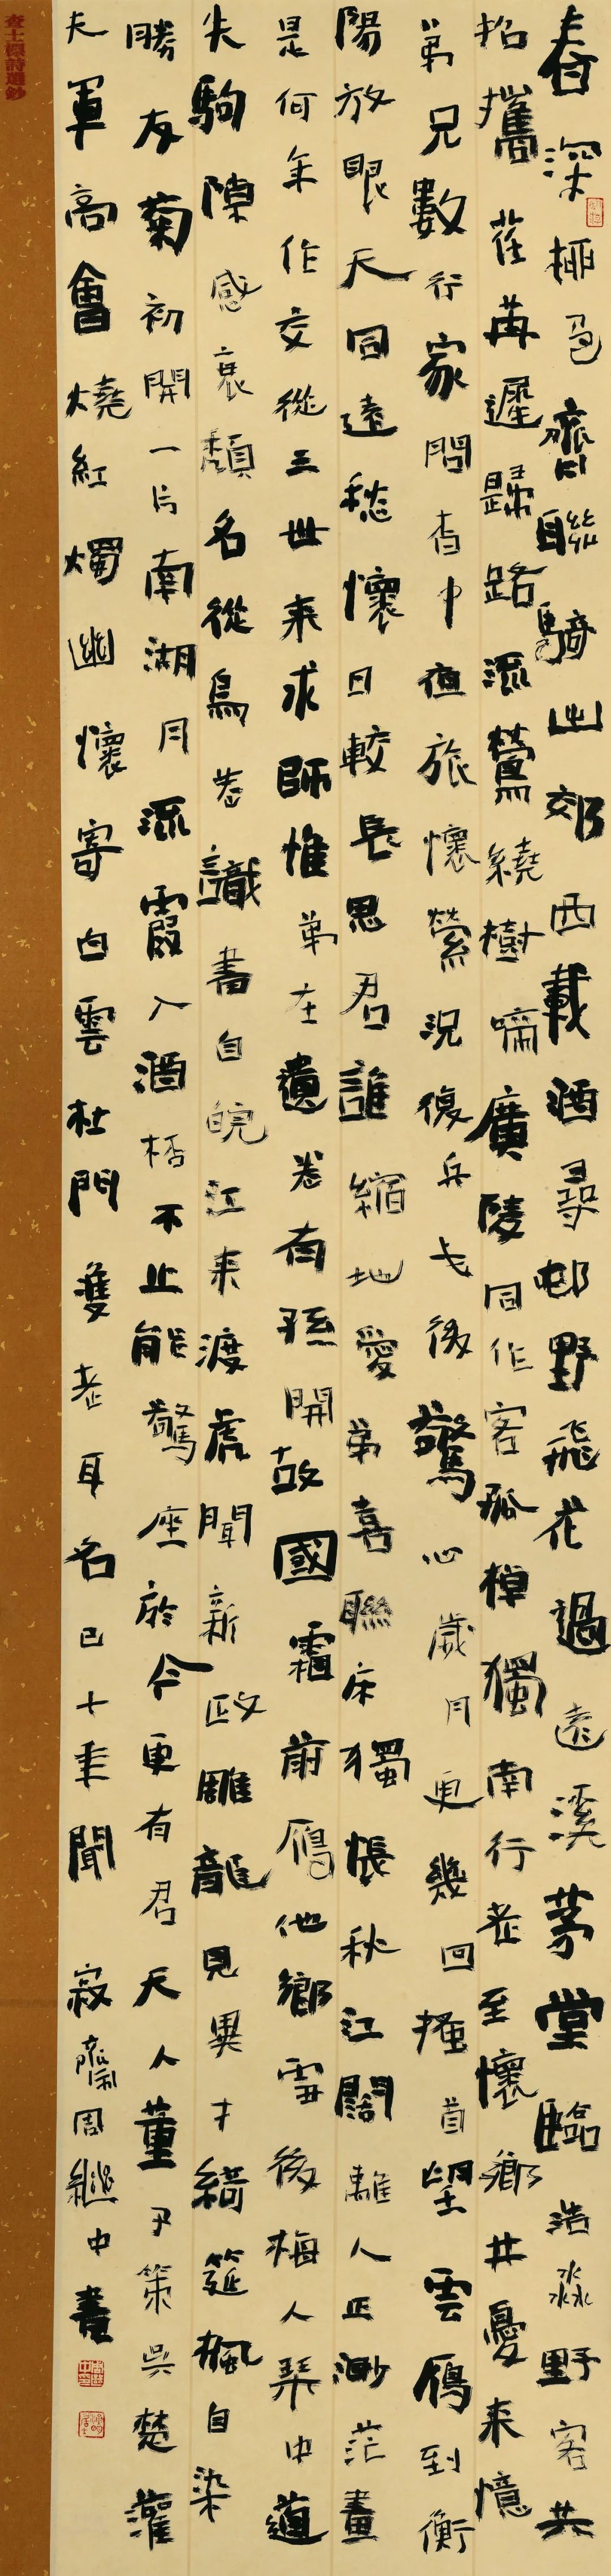 春深柳色齊聯騎出郊西載酒尋邨野飛花過遠溪茅堂臨浩淼野客共
招攜荏苒遲歸路流鶯繞樹啼廣陵同作客孤棹獨南行老至懷鄉井憂來憶
弟兄數行家問杳中夜旅懷縈況復兵戈後驚心歲月更幾回搔首望雲鴈到衡
陽放眼天同遠愁懷日較長思君誰縮地愛弟喜聯床獨悵秋江闊離人正渺茫畫
是何年作交從三世來求師惟弟在遺卷有孫開故國霜前鴈他鄉雪後梅人琴中道
失駒隙感衰頹名從鳥卷識書自皖江來渡虎聞新政雕龍見異才綺筵楓自染
勝友菊初開一片南湖月流霞入酒杯不止能驚座於今更有君天人董尹策吳楚灌
夫軍高會燒紅燭幽懷寄白雲杜門雙老耳名已十年聞 寂齋周繼中書
查士標詩選鈔